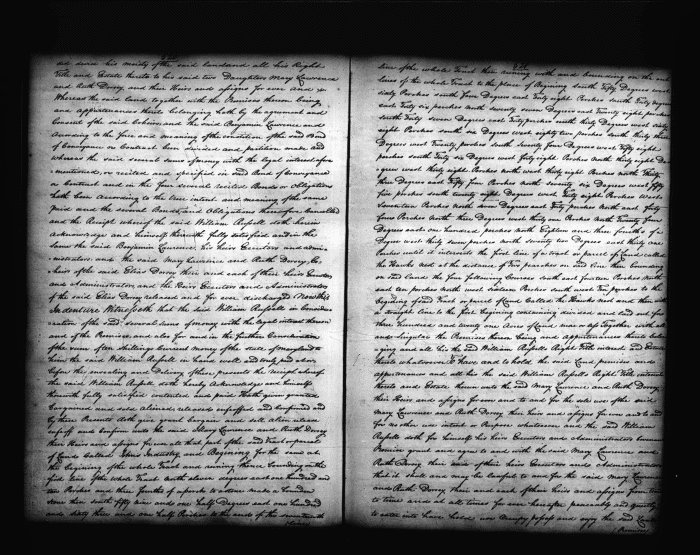 ed since his moiety of the said land and all his Right
Title and Estate thereto to his said two Daughters Mary Lawrence
and Ruth Dorsey and their Heirs and assigns for ever And
Whereas the said Land together with the Premises thereon being
and appurtenances thereto belonging hath by the agreement and
Consent of the said Colvin and the said Benjamin Lawrence and
According to the form and meaning of the condition of the said Bond
of Conveyance or Contract been divided and petition made and
whereas the said several sums of money with the legal interest afore
mentioned, or recited and specified in said Bond of Conveyance
or Contract and in the four several recited Bonds or Obligations
hath been According to the true intent and meaning of the same
Paid and the several Bonds and Obligations therefore Cancelled
and the Receipt whereof the said William Aufell doth herein
Acknowledge and himself therewith fully satisfied and in the
same the said Benjamin Lawrence his heirs Executors and admi
nistrators and the said Mary Lawrence and Ruth Dorsey Co
heirs of the said Elias Dorsey their and each of their heirs Executors
and Administrators and the Heirs Executors and Administrators
of the said Elias Dorsey released and for ever discharged Now this
Indenture Witnesseth that the said William Aufell in Conside
ration of the said several sums of money with the legal interest thereon
and of the Premises, and also for and in the further Consideration
of the sum of ten shillings current money of the state of Maryland to
him the said William Aufell in hand well and truly paid at or
before the ensealing and Delivery of these presents the receipt whereof
the said William Aufell doth hereby Acknowledge and himself
therewith fully satisfied contented and paid Hath given granted
Bargained and sold aliened released enfeoffed and confirmed and
by these Presents doth give grant bargain and sell alien release
enfeoff and confirm unto the said Mary Lawrence and Ruth Dorsey
their Heirs and assigns for ever all that part of the said Tract or parcel
of Land Called Johns Industry and Beginning for the same at
the begining of the whole Tract and runing thence bounding on the
first line of the whole Tract North eleven degrees east one hundred and
ten Perches and three fourths of a perch to a stone mark a boundary
stone then south fifty nine and one half Degrees east one hundred
and sixty three and one half Perches to the end of the seventeenth
line of the whole Tract then runing with and bounding on the said
lines of the whole Tract to the place of Begining South fifty Degrees west
sixty Perches south four Degrees east forty eight Perches South eighty Degrees
east forty six perches north seventy nine Degrees east Twenty perches
south sixty seven Degrees east forty perches south thirty Degrees west sixty
eight Perches south six Degrees west eighty two perches South thirty three
Degrees west Twenty perches south seventy four Degrees west fifty eight
perches south thirty six Degrees west forty eight Perches North thirty eight De
grees west thirty Perches North thirty Degrees west thirty Perches North thirty
three Degrees east fifty four Perches North sixty six Degrees west fifty
five perches south seventy eight Degrees west thirty eight Perches West
seventeen Perches North sixty six Degrees east fifty Perches North and forty
four Perches North three Degrees west thirty one Perches North Twenty four
Degrees east one hundred perches North Eighteen and three fourths of a
Degree west thirty seven perches north seventy two Degrees east thirty one
Perches until it intersects the first line of a tract or parcel of Land called
the Hawks nest at the distance of Ten perches on said line then bounding
on said Land the four following Courses South west fourteen Perches North
east ten perches North west sixteen Perches South west Ten perches to the
begining of said Tract or parcel of Land Called the Hawks nest and then with
a straight line to the first begining containing divided and laid out for
three hundred and twenty one Acres of Land more or less Together with all
and singular the Premises thereon being and appurtenances thereto belon
ging and all his the said William Aufells Right Title interest and Estate
thereto whatsoever To have and to hold the said Land premises and
appurtenances and all his the said William Aufells Right Title interest
thereto and Estate therein unto the said Mary Lawrence and Ruth Dorsey
their Heirs and assigns for ever and to and for the sole use of the said
Mary Lawrence and Ruth Dorsey their heirs and assigns for ever and to and
for no other use intent or Purpose whatsoever and the said William
Aufell doth for himself his heirs Executors and Administrators Covenant
Promise grant and agree to and with the said Mary Lawrence and
Ruth Dorsey their and each of their Heirs Executors and Administrators
that it shall and may be lawful to and for the said Mary Lawrence
and Ruth Dorsey their and each of their heirs and assigns from time
to time and at all times for ever hereafter peaceably and quietly
to enter into have hold use occupy possess and enjoy the said Land
Premises